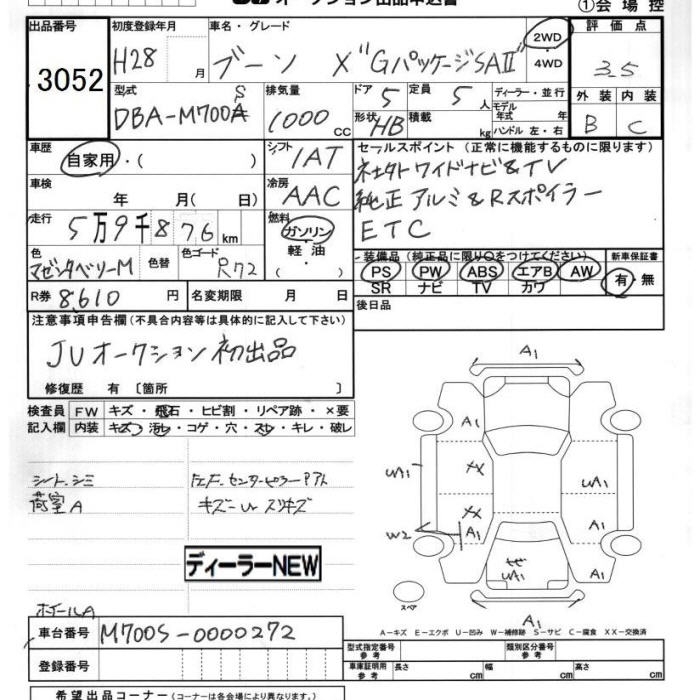 オークション出品申込書
①会場控
出品番号 初度登録年月 車名・グレード 評価点
3052 H28 月 ブーン X "GパッケージSAⅡ" 2WD 4WD 3.5
型式 排気量 ドア 定員 ディーラー・並行 外装 内装
DBA-M700S 1000 cc 5 5 人 モデル年式 年式 B C
形状 HB 積載 kg ハンドル 左・右
車歴 自家用・( ) シフト IAT セールスポイント (正常に機能するものに限ります)
ネオクトワイドナビ&TV
車検 年 月( 日) 冷房 AAC 純正アルミ&Rスポイラー
走行 5万9千876km 燃料 ガソリン・軽油・ ETC
色 マゼンタベリーM 色替 色ゴード R72
装備品 (純正品に限り○をつけてください) 新車保証書
PS PW ABS エアB AW 有・無
SR ナビ TV カワ
R券 8,610 円 名変期限 月 日 後日品
注意事項申告欄(不具合内容等は具体的に記入して下さい)
JUオークション初出品
修復歴 有 〔箇所 〕
検査員 記入欄 FW キズ・飛石・ヒビ割・リペア跡・×要
内装 キズ・汚レ・コゲ・穴・スレ・キレ・破レ
シートシミ
荷室A
キズーU スリキズ
ディーラーNEW
ホイールA
A1
A1
UA1
XX
UA1
XX
W2
A1
A1
UA1
A1
スペア
A1
A-キズ E-エクボ U-凹み W-補修跡 S-サビ C-腐食 XX-交換済
車台番号 M700S-0000272
型式指定番号 参考 類別区分番号 参考
登録番号
車庫証明用 参考 長さ cm 幅 cm 高さ cm
希望出品コーナー (コーナーは各会場により異なります。)